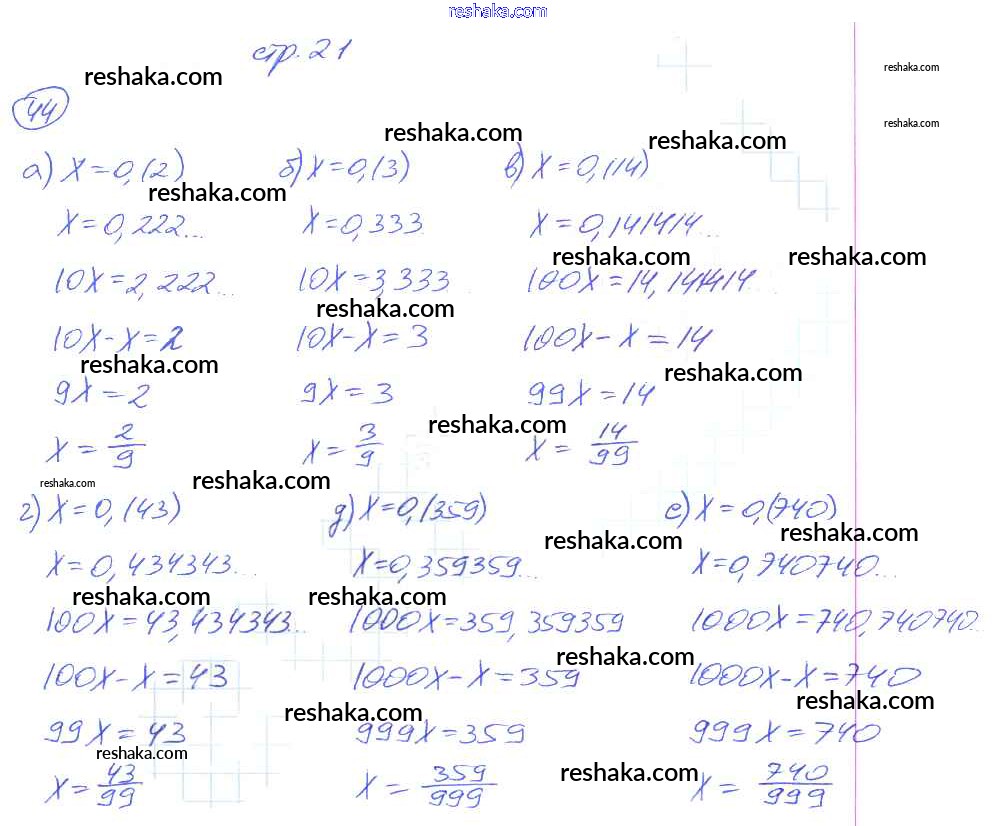 reshaka.com
стр. 21
reshaka.com
reshaka.com
44
reshaka.com
reshaka.com
reshaka.com
а) x=0,(2) б) x=0,(3) в) x=0,(14)
reshaka.com
x=0,222... x=0,333 x=0,141414...
reshaka.com reshaka.com
10x=2,222... 10x=3,333 100x=14,141414...
reshaka.com
10x-x=2 10x-x=3 100x-x=14
reshaka.com reshaka.com
9x=2 9x=3 99x=14
reshaka.com
x=2/9 x=3/9 x=14/99
reshaka.com reshaka.com
г) x=0,(43) д) x=0,(359) е) x=0,(740)
reshaka.com reshaka.com
x=0,434343... x=0,359359... x=0,740740...
reshaka.com reshaka.com
100x=43,434343... 1000x=359,359359 1000x=740,740740...
reshaka.com
100x-x=43 1000x-x=359 1000x-x=740
reshaka.com reshaka.com
99x=43 999x=359 999x=740
reshaka.com reshaka.com
x=43/99 x=359/999 x=740/999